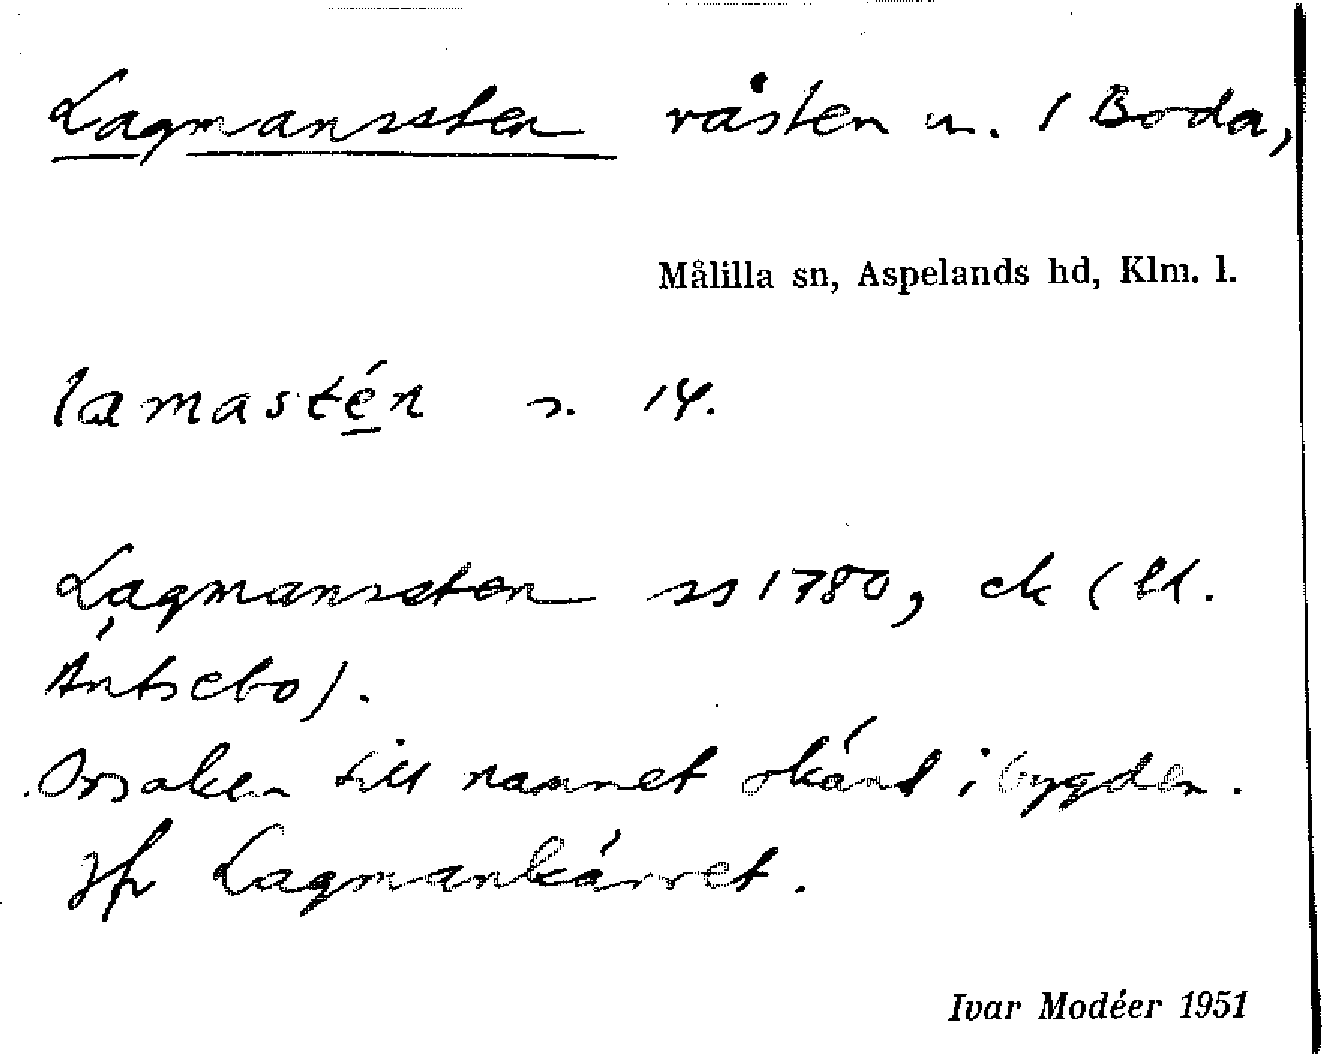 Lagmanssten råsten n. 1 Boda,
Målilla sn, Aspelands hd, Klm. l.
lamastén s. 14.
Lagmanssten ss 1780, ek (ll.
Äntsebo).
Orsaken till namnet okänd i bygden.
Jfr Lagmankärret.
Ivar Modéer 1951